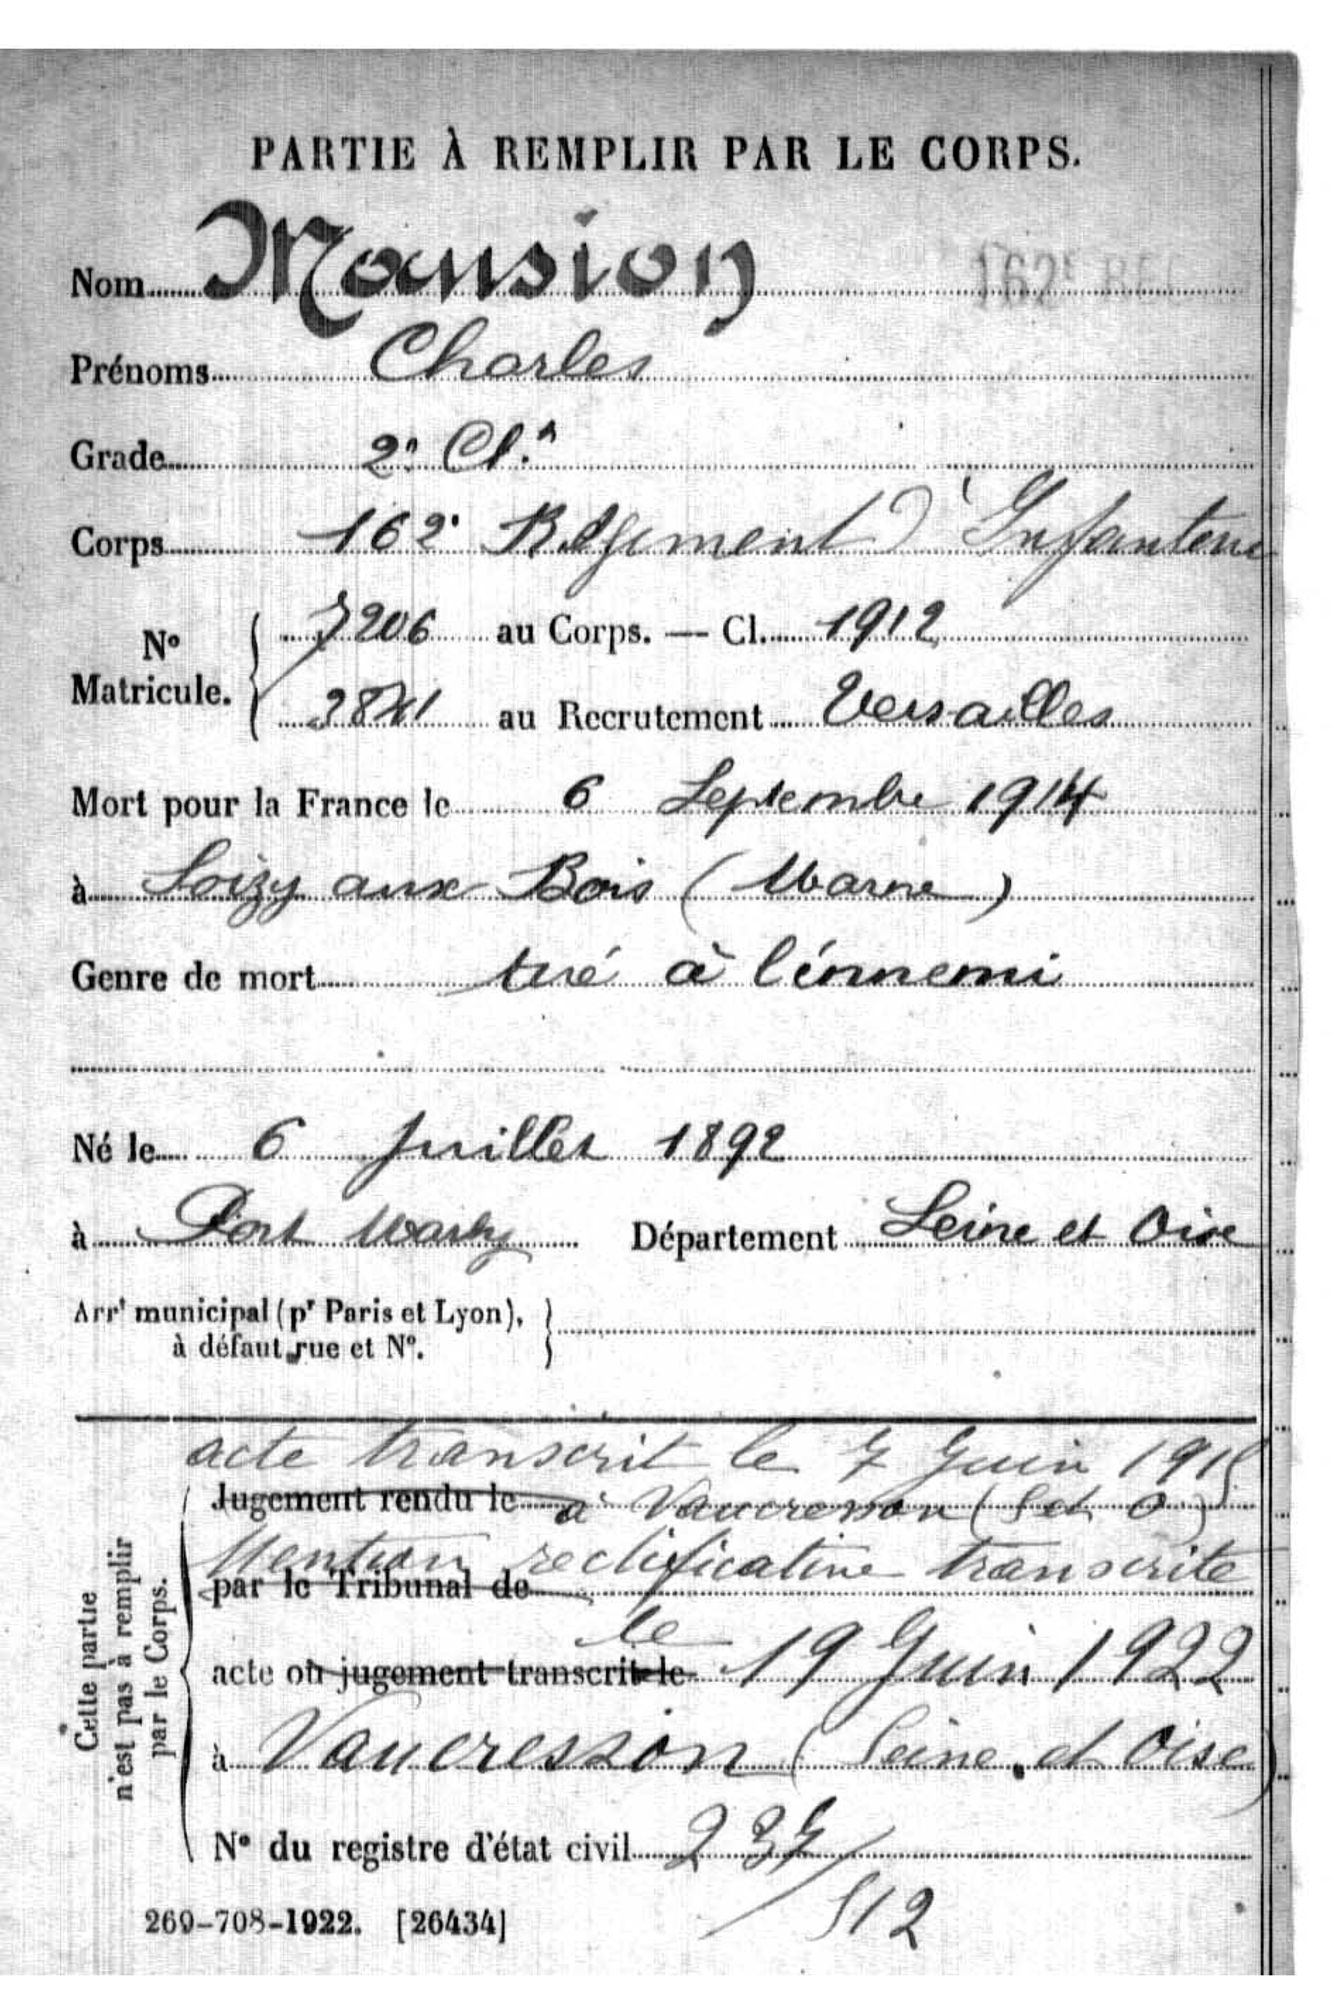 PARTIE À REMPLIR PAR LE CORPS.
Nom Mansion
162e
Prénoms Charles
Grade 2e Cl.e
Corps 162e Régiment d'Infanterie
No Matricule. { 7206 au Corps. — Cl. 1912
au Recrutement Versailles
Mort pour la France le 6 Septembre 1914
à Soizy aux Bois (Marne)
Genre de mort tué à l'énnemi
Né le 6 Juillet 1892
à Port Marly Département Seine et Oise
Arrt municipal (pr Paris et Lyon),
à défaut rue et No.
acte transcrit le 7 Juin 1915
Jugement rendu le à Vaucresson (S et O)
Mention rectificative transcrite
par le Tribunal de
le
acte ou jugement transcrit le 19 Juin 1922
à Vaucresson (Seine et Oise)
No du registre d'état civil 237/
512
Cette partie
n'est pas à remplir
par le Corps.
269-708-1922. [26434]